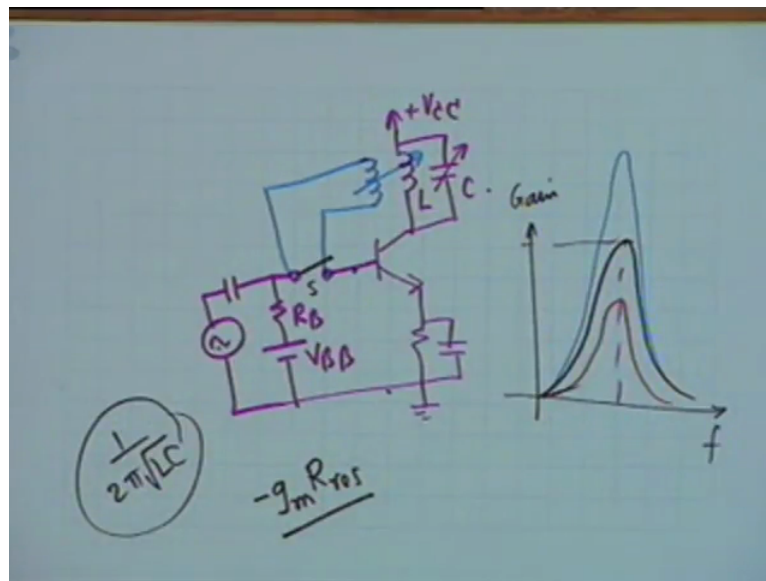 +VCC
L
C.
Gain
S
RB
VBB
f
1
2π√LC
-gmRres